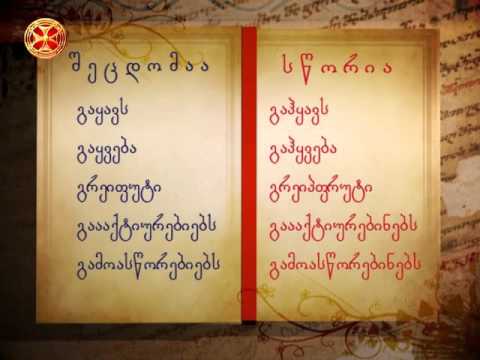 შეცდომაა
გაყავს
გაყვება
გრეიფუტი
გაააქტიურებიებს
გამოასწორებიებს
სწორია
გაჰყავს
გაჰყვება
გრეიპფრუტი
გაააქტიურებინებს
გამოასწორებინებს